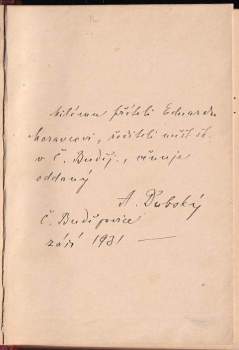 Milému příteli Eduardu
Moravcovi, řediteli měšť. šk.
v Č. Buděj., věnuje
oddaný
A. Dubský
Č. Budějovice
září 1931 —